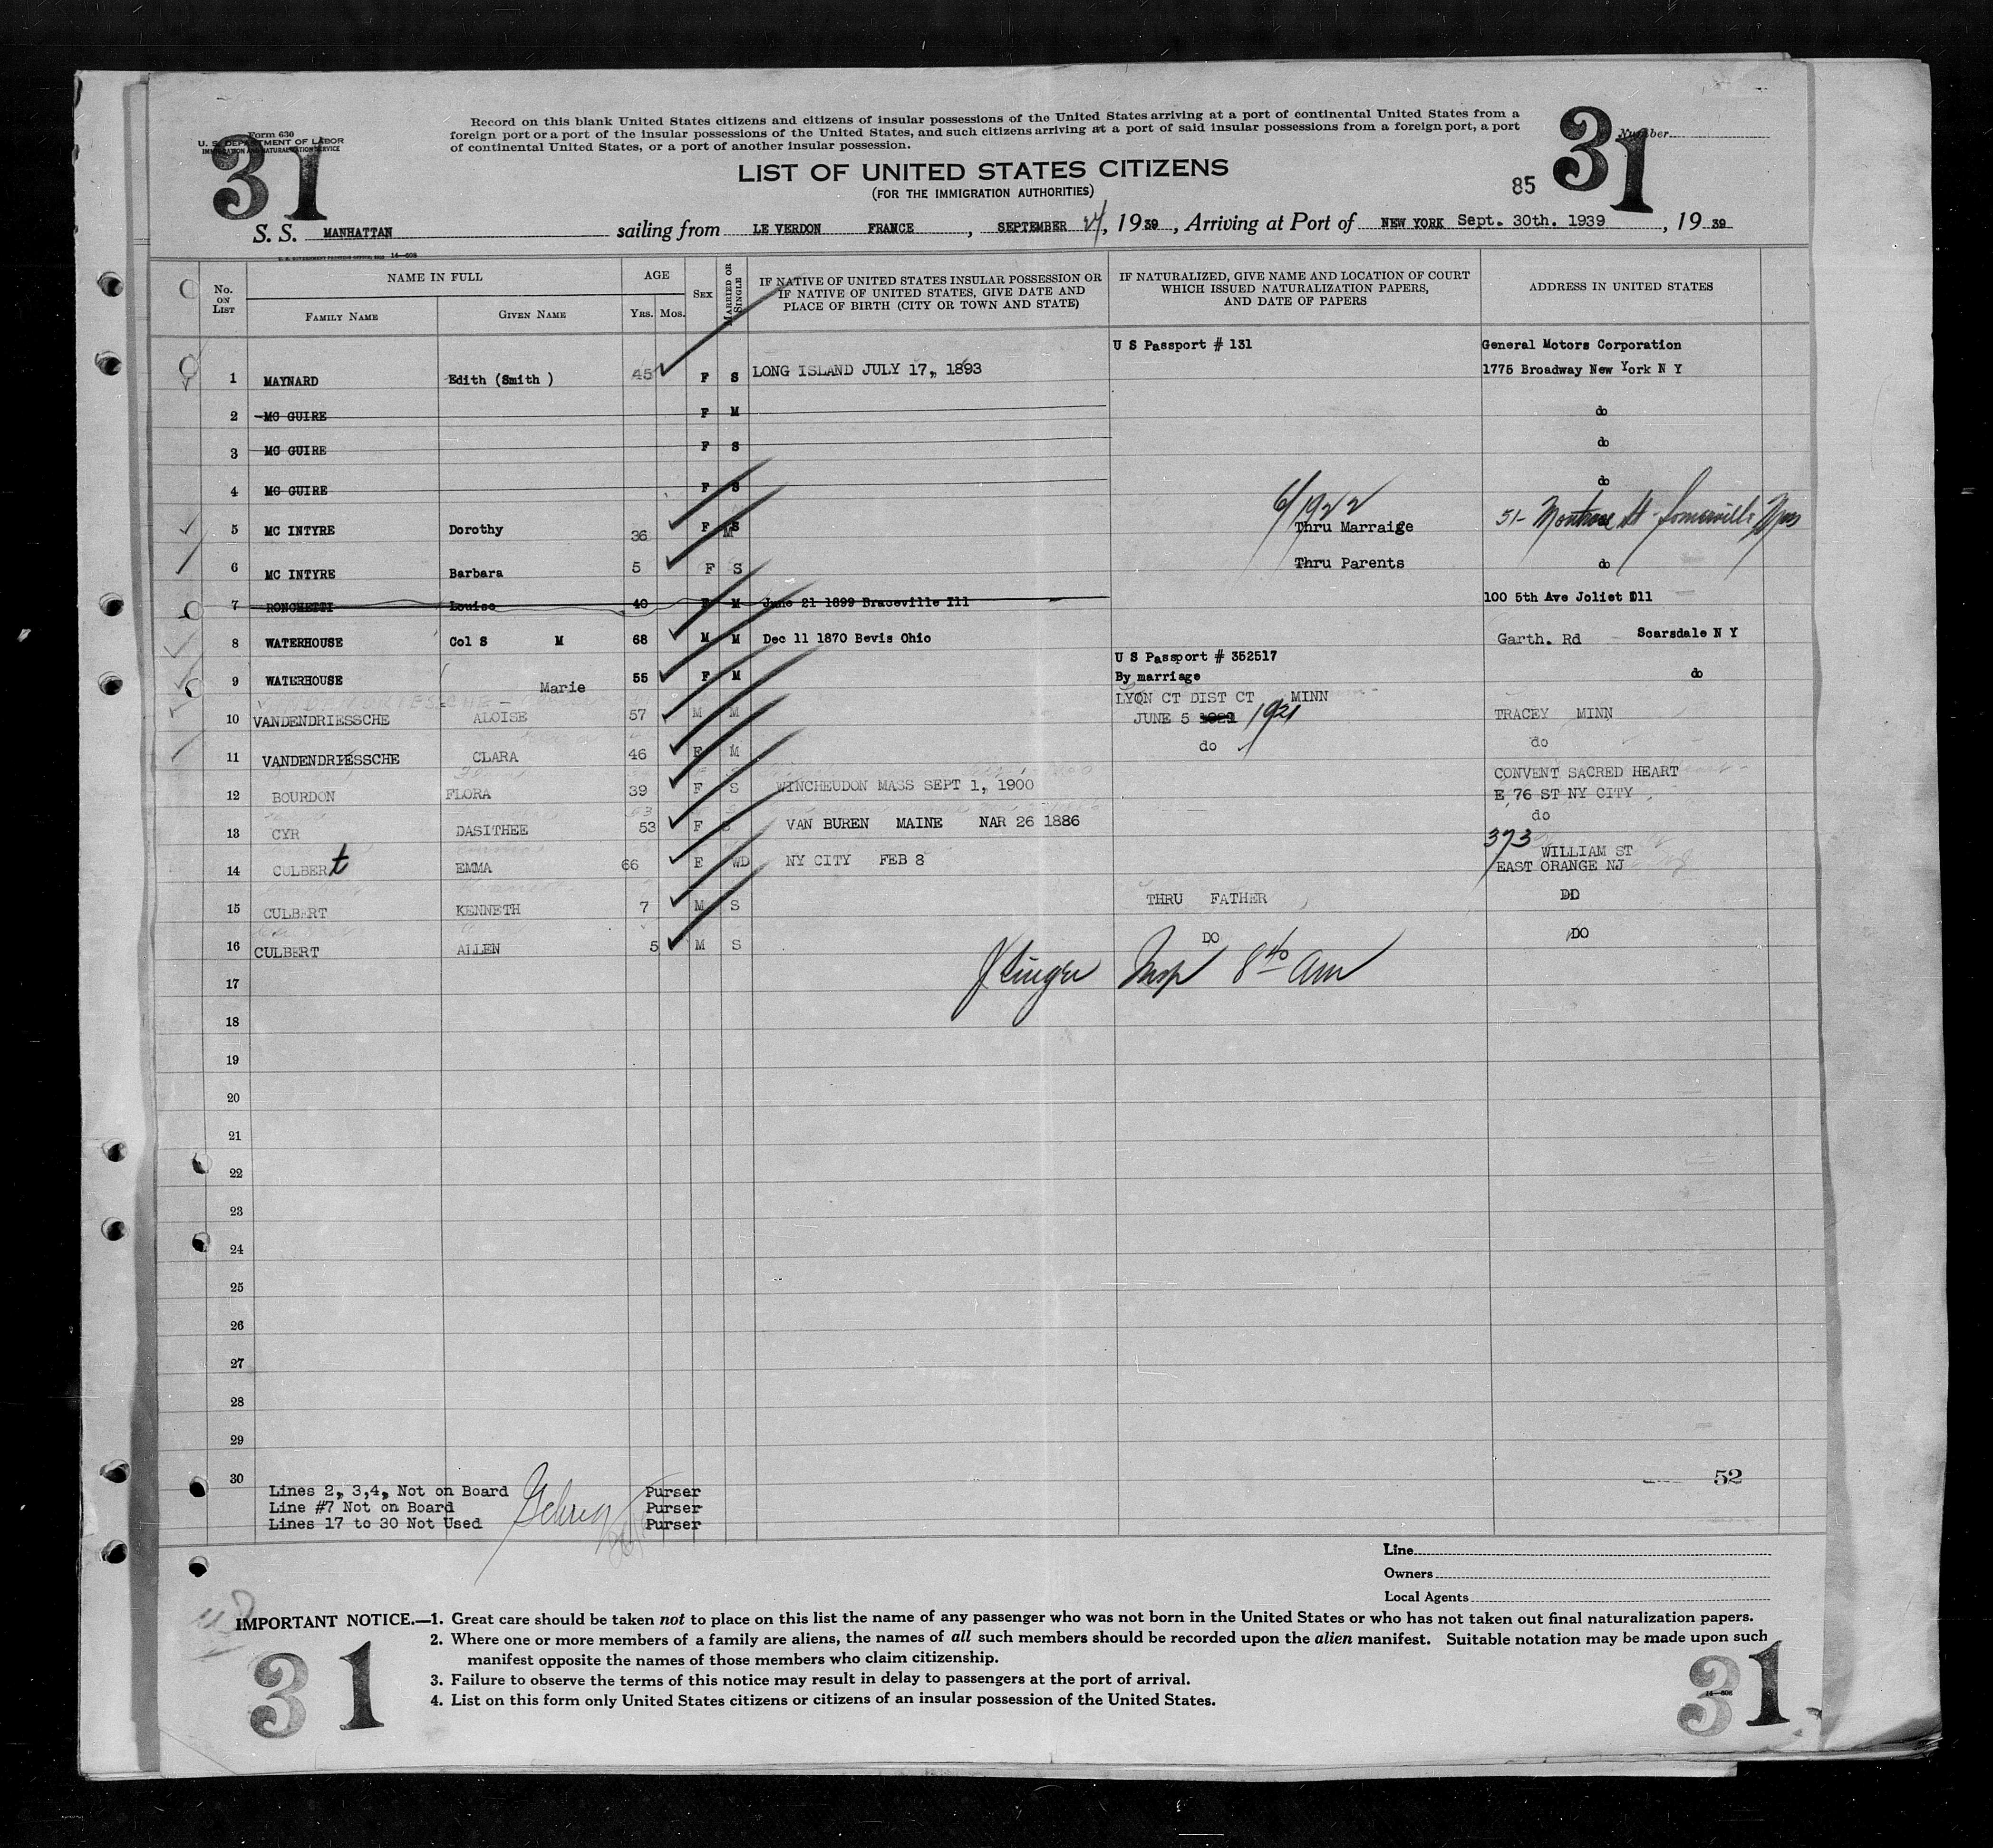 31
Form 630
U. S. DEPARTMENT OF LABOR
IMMIGRATION AND NATURALIZATION SERVICE
Record on this blank United States citizens and citizens of insular possessions of the United States arriving at a port of continental United States from a
foreign port or a port of the insular possessions of the United States, and such citizens arriving at a port of said insular possessions from a foreign port, a port
of continental United States, or a port of another insular possession.
31
Number
LIST OF UNITED STATES CITIZENS
(FOR THE IMMIGRATION AUTHORITIES)
85
S. S. MANHATTAN sailing from LE VERDON FRANCE, SEPTEMBER 24, 1939, Arriving at Port of NEW YORK Sept. 30th. 1939, 1939
14-608
No. ON LIST NAME IN FULL AGE SEX MARRIED OR SINGLE IF NATIVE OF UNITED STATES INSULAR POSSESSION OR IF NATIVE OF UNITED STATES, GIVE DATE AND PLACE OF BIRTH (CITY OR TOWN AND STATE) IF NATURALIZED, GIVE NAME AND LOCATION OF COURT WHICH ISSUED NATURALIZATION PAPERS, AND DATE OF PAPERS ADDRESS IN UNITED STATES
FAMILY NAME GIVEN NAME YRS. MOS.
U S Passport # 131 General Motors Corporation
1 MAYNARD Edith (Smith ) 45 F S LONG ISLAND JULY 17, 1893 1775 Broadway New York N Y
2 MC GUIRE F M do
3 MC GUIRE F S do
4 MC GUIRE F S do
6/1922
5 MC INTYRE Dorothy 36 F S M Thru Marraige 51- Montrose St - Somerville Mass
6 MC INTYRE Barbara 5 F S Thru Parents do
7 RONCHETTI Louise 40 F M June 21 1899 Braceville Ill 100 5th Ave Joliet Ill
8 WATERHOUSE Col S M 68 M M Dec 11 1870 Bevis Ohio Garth. Rd Scarsdale N Y
U S Passport # 352517
9 WATERHOUSE Marie 55 F M By marriage do
LYON CT DIST CT MINN
10 VANDENDRIESSCHE ALOISE 57 M M JUNE 5 1921 TRACEY MINN
11 VANDENDRIESSCHE CLARA 46 F M do do
CONVENT SACRED HEART
12 BOURDON FLORA 39 F S WINCHEUDON MASS SEPT 1, 1900 E 76 ST NY CITY
13 CYR DASITHEE 53 F S VAN BUREN MAINE NAR 26 1886 do
373 WILLIAM ST
14 CULBERt EMMA 66 F WD NY CITY FEB 8 EAST ORANGE NJ
15 CULBERT KENNETH 7 M S THRU FATHER DO
16 CULBERT ALLEN 5 M S DO DO
17 Insp 8 40 am
18
19
20
21
22
23
24
25
26
27
28
29
30 52
Lines 2, 3,4, Not on Board Purser
Line #7 Not on Board Purser
Lines 17 to 30 Not Used Purser
Line
Owners
Local Agents
IMPORTANT NOTICE.—1. Great care should be taken not to place on this list the name of any passenger who was not born in the United States or who has not taken out final naturalization papers.
2. Where one or more members of a family are aliens, the names of all such members should be recorded upon the alien manifest. Suitable notation may be made upon such
manifest opposite the names of those members who claim citizenship.
3. Failure to observe the terms of this notice may result in delay to passengers at the port of arrival.
4. List on this form only United States citizens or citizens of an insular possession of the United States.
31
14-608
31